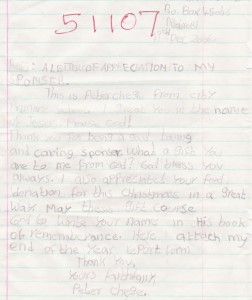 51107
P.O. Box
Nairobi
Dec 2010
RE: A LETTER OF APPRECIATION TO MY
SPONSER.
This is Peter chege from city
Nairobi I greet you in the name
of Jesus. Praise God!
Thank you for being a good, loving
and caring sponser. What a gift you
are to me from God? God bless you
always. I also appreciated your food
donation for this Christmas in a great
way. May the course
God to write your name in his book
of rememberance. Here I attach my
end of the year report form.
Thank you,
Yours faithfully
Peter Chege.